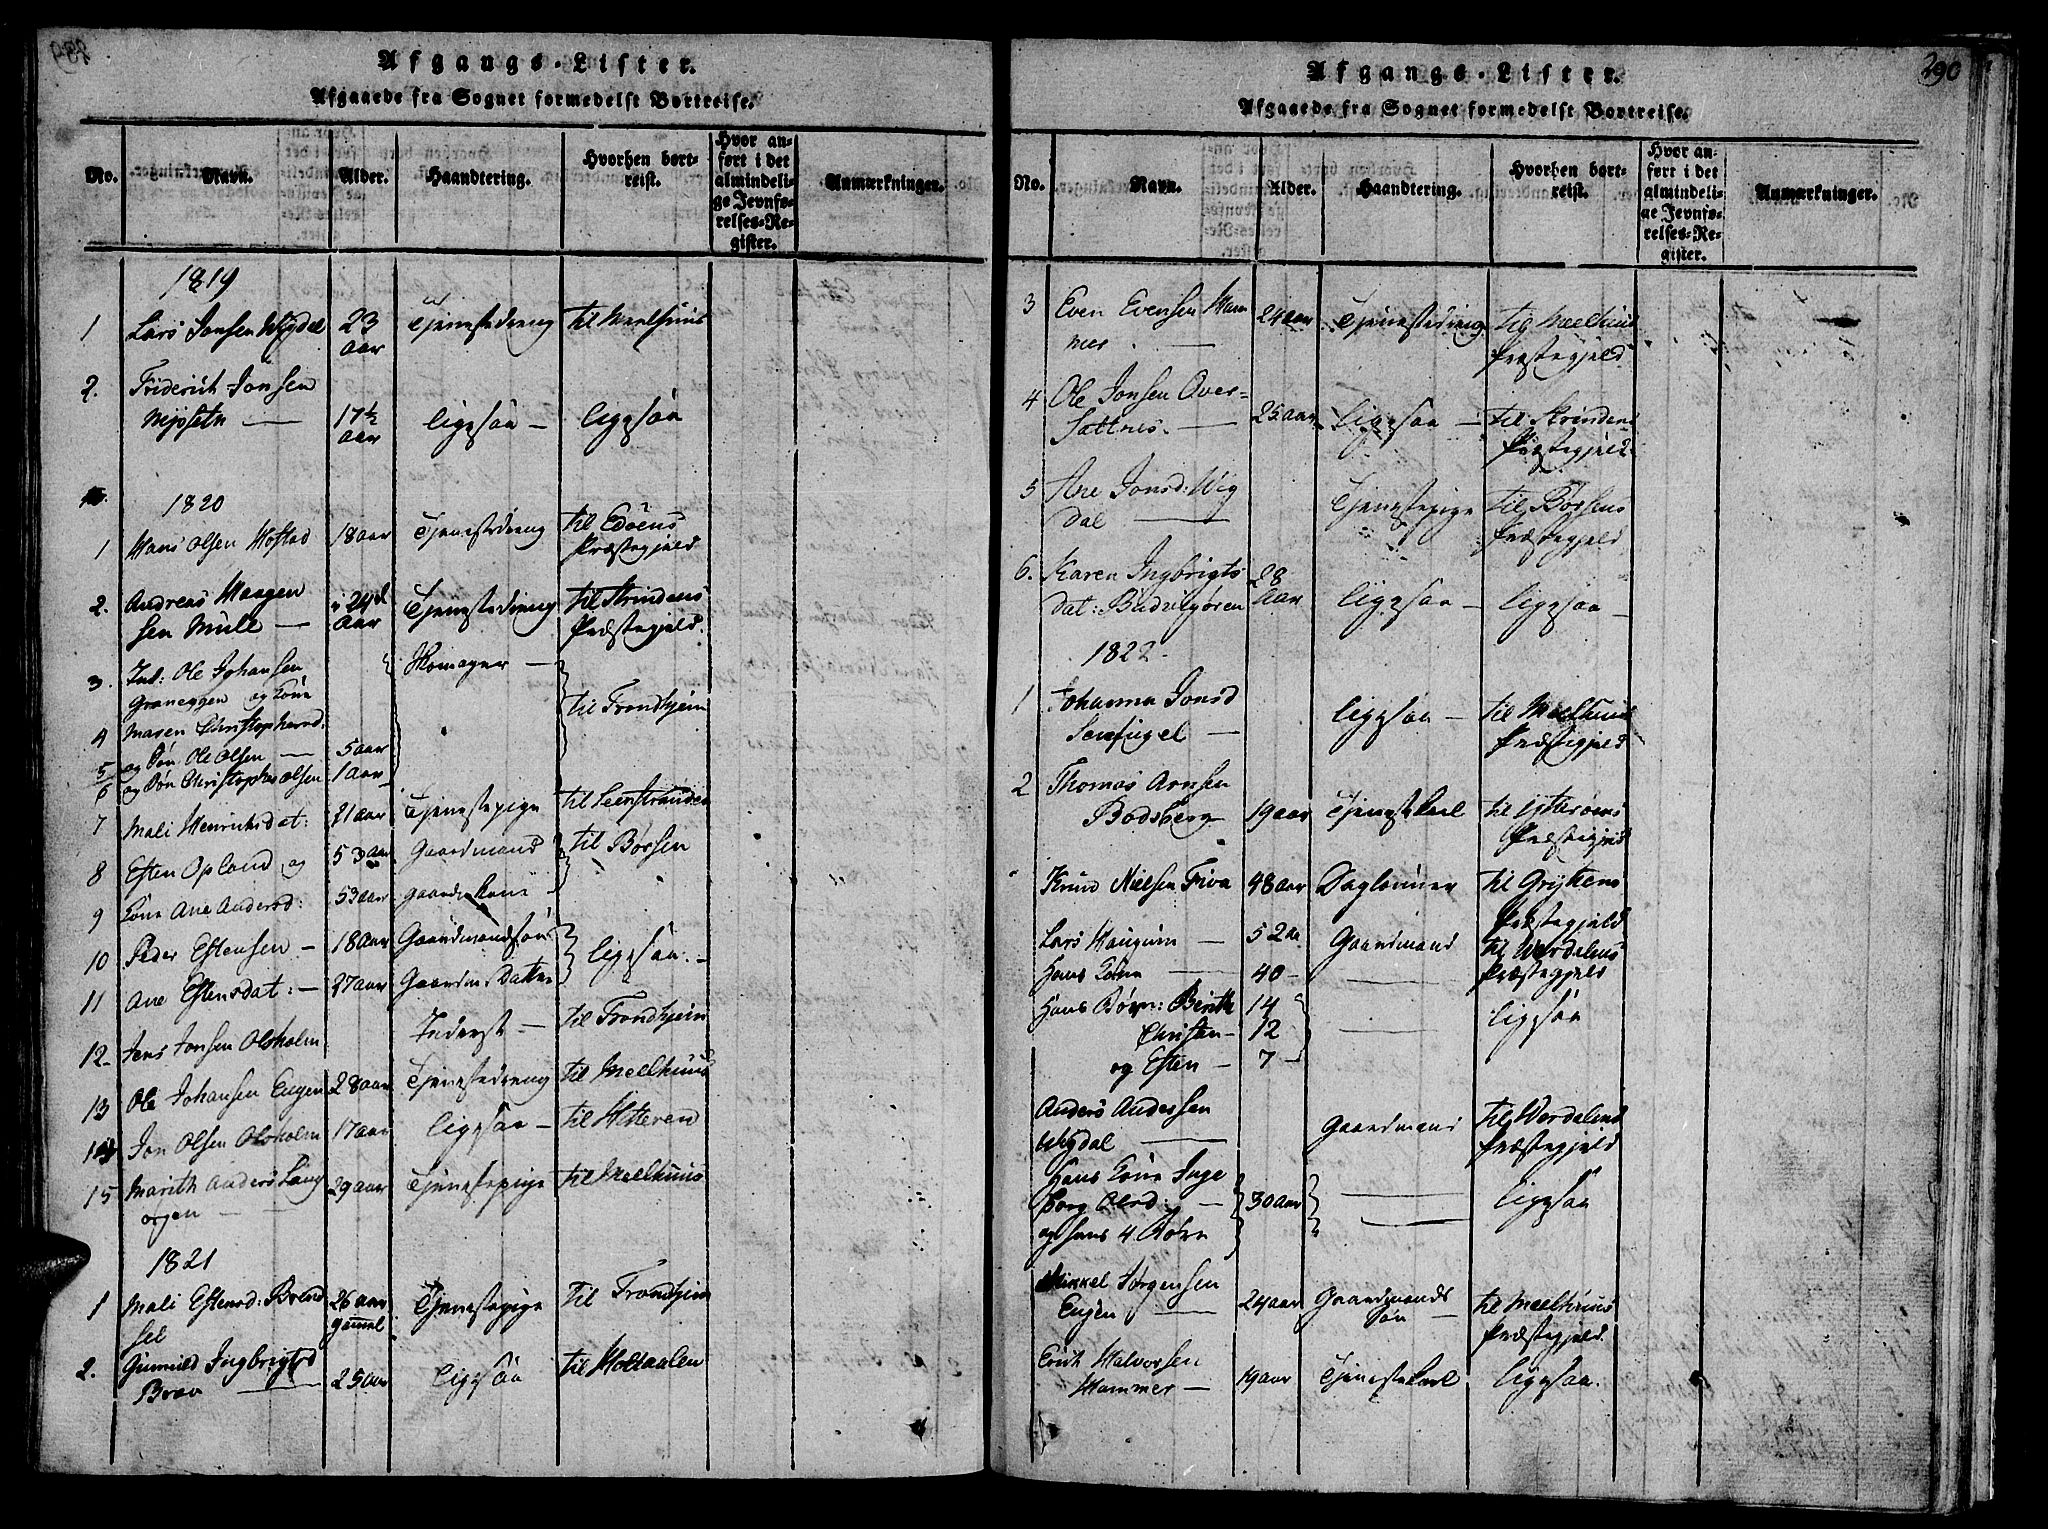 Afgangs-Lister.
Afgaaede fra Sognet formedelst Bortreise.
No. Navn. Alder. Haandtering. Hvorhen bortreist. Hvor anført i det almindelige Jevnførelses-Register. Anmærkninger.
1819
1 Lars Jonsen Wigdal 23 aar Tjenestedreng til Meelhuus
2. Friderich Jonsen
17½ aar ligesaa — ligesaa
1820
1 Hans Olsen Hofstad 18 aar Tjenestedreng til Edöens Præstegjeld
2. Andreas Haagen
sen Mule — i 24d aar Tjenestedreng til Strindens Præstegjeld.
3. Ind: Ole Johansen Skomager —
Graneggen og Kone til Trondhjem
4 Maren Christophersd:
5 og Søn Ole Olsen — 5 aar
6 og Søn Christopher Olsen 1 aar
7 Mali Henrichsdat: 21 aar Tjenestepige til Leenstranden
8 Esten Opland og 53 aar Gaardmand til Børsen
9 Kone Ane Andersd: 53 aar Gaardm Kone
10 Peder Estensen — 18 aar Gaardmandssön ligesaa. —
11 Ane Estensdat: — 27 aar Gaardm. Datter
12 Jens Jonsen Olsholm Inderst — til Trondhjem
13 Ole Johansen Eugen 28 aar Tjenestedreng til Meelhuus
14 Jon Olsen Olsholm 17 aar ligesaa — til Hitteren
15 Marith Anders Laug
29 aar Tjenestepige til Meelhuus
1821
1 Mali Estensd:
26 aar gammel Tjenestepige til Trondhjem
2. Gunnild Ingbrigtsd
25 aar ligesaa til Holtaalen
290
Afgangs-Lister.
Afgaaede fra Sognet formedelst Bortreise.
No. Navn. Alder. Haandtering. Hvorhen bortreist. Hvor anført i det almindelige Jevnførelses-Register. Anmærkninger.
3 Even Evensen Ham
mer — 24 aar Tjenestedreng til Meelhuus Præstegjeld
4 Ole Jonsen Over-
Sættnes. — 25 aar ligesaa — til Strindens Præstegjeld.
5 Ane Jonsd: Wig
dal — Tjenestepige til Børsens Præstegjeld
6. Karen Ingbrigts
dat: 28 aar ligesaa — ligesaa —
1822
1 Johanna Jonsd
ligesaa — til Meelhuus Præstegjeld
2 Thomas Arnsen
Bodsberg 19 aar Tjenestekarl til Ytterøens Præstegjeld
Knud Nielsen Fiva 48 aar Dagleiner til Grytens Præstegjeld
Lars Haugum — 52 aar Gaardmand til Werdalens Præstegjeld
Hans Kone — 40 —
Hans Børn: Berith 14 — ligesaa
Christen — 12
og Esten — 7 —
Anders Andersen
Wigdal — Gaardmand til Werdalens Præstegjeld
Hans Kone Inge
borg Olsd — 30 aar — ligesaa
og hans 4 Børn —
Mikkel Jørgensen
Eugen — 24 aar Gaardmands Søn — til Meelhuus Præstegjeld
Erich Halvorsen
Hammer — 19 aar Tjenestekarl ligesaa.